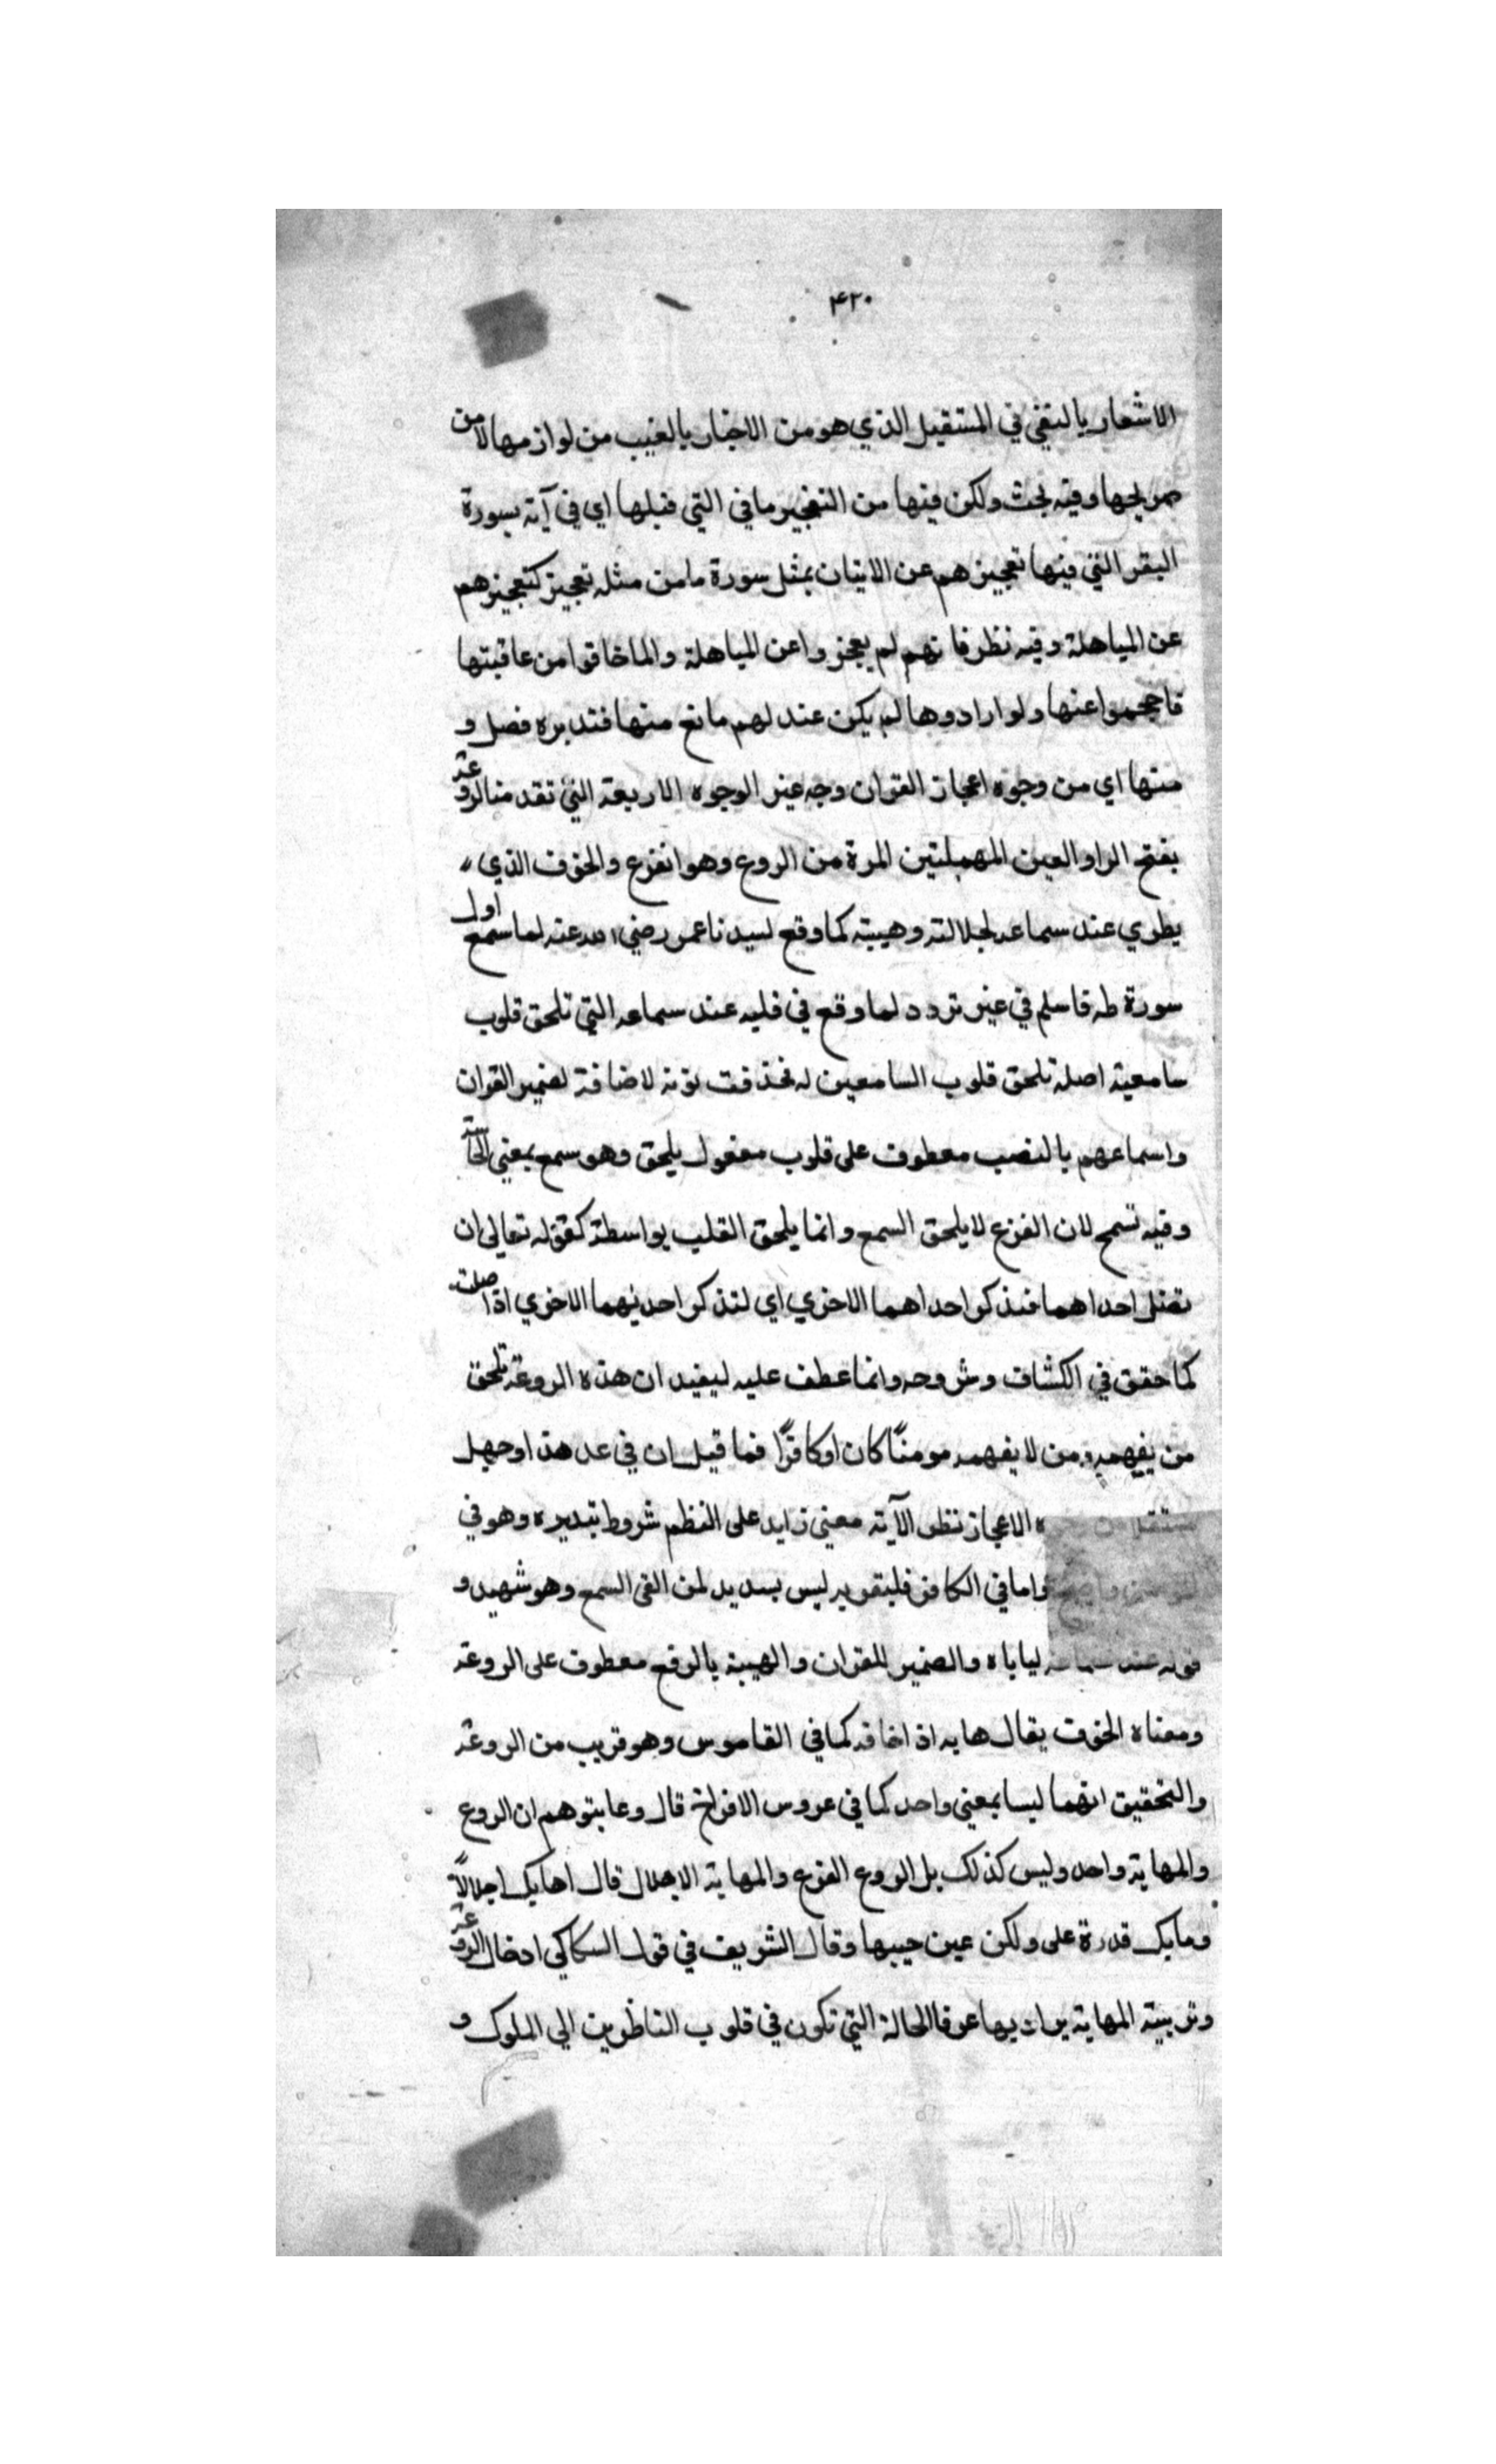 ٤٢٠
الاشعار بالنفي في المستقبل الذي هو من الاخبار بالغيب من لوازمها لا من
صريحها وفيه بحث ولكن فيها من التعجيز ما في التي قبلها اي في آية سورة
البقر التي فيها تعجيزهم عن الاتيان بمثل سورة ما من مثله تعجيز كتعجيزهم
عن المباهلة وفيه نظر فانهم لم يعجزوا عن المباهلة وانما خافوا من عاقبتها
فاحجموا عنها ولو ارادوها لم يكن عندلهم مانع منها فتدبره فصل و
منها اي من وجوه اعجاز القران وجه غير الوجوه الاربعة التي تقدمنا الروعة
بفتح الرا والعين المهملتين المرة من الروع وهو انفزع والخوف الذي
يطري عند سماعه لجلالته وهيبته كما وقع لسيدنا عمر رضي الله عنه لما سمع اول
سورة طه فاسلم في غير تردد لما وقع في قلبه عند سماعه التي تلحق قلوب
سامعيه اصله تلحق قلوب السامعين له فحذفت نونه لاضافة لضمير القران
واسماعهم بالنصب معطوف على قلوب مفعول يلحق وهو سمع بمعني الحاسة
وفيه تسمح لان الفزع لا يلحق السمع وانما يلحق القلب بواسطة كقوله تعالي ان
تضل احداهما فتذكر احداهما الاخري اي لتذكر احديهما الاخري اذا ضلت
كما حقق في الكشاف وشروحه وانما عطف عليه ليفيد ان هذه الروعة تلحق
من يفهمه ومن لا يفهمه مومنًا كان او كافرًا فما قيل ان في عد هذا وجها
مستقلا من الاعجاز نظر الآية معني زايد على النظم شروط بتدبره وهو في
واما في الكافر فليتقوير ليس بسديد لمن القى السمع وهو شهيد و
قوله عند سماعه لياباه والضمير للقران والهيبة بالرفع معطوف على الروعة
ومعناه الخوف يقال هابه اذا خافه كما في القاموس وهو قريب من الروعة
والتحقيق انهما ليسا بمعني واحد كما في عروس الافراح قال وعا يتوهم ان الروع
والمهابة واحد وليس كذلك بل الروع الفزع والمهابة الاجلال قال اهابك اجلالًا
وما بك قدرة على ولكن عين حبيبها وقال الشريف في قول السكاكي ادخال الروعة
وتربية المهابة يراد بها عرفا الحالة التي تكون في قلوب الناظرين الي الملوك و